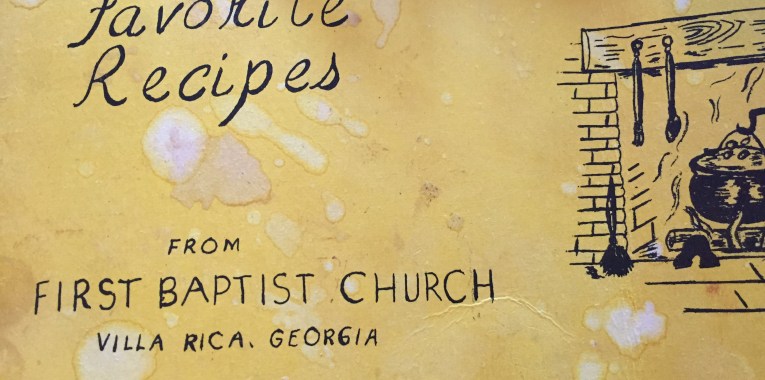 Favorite
Recipes
FROM
FIRST BAPTIST CHURCH
VILLA RICA. GEORGIA